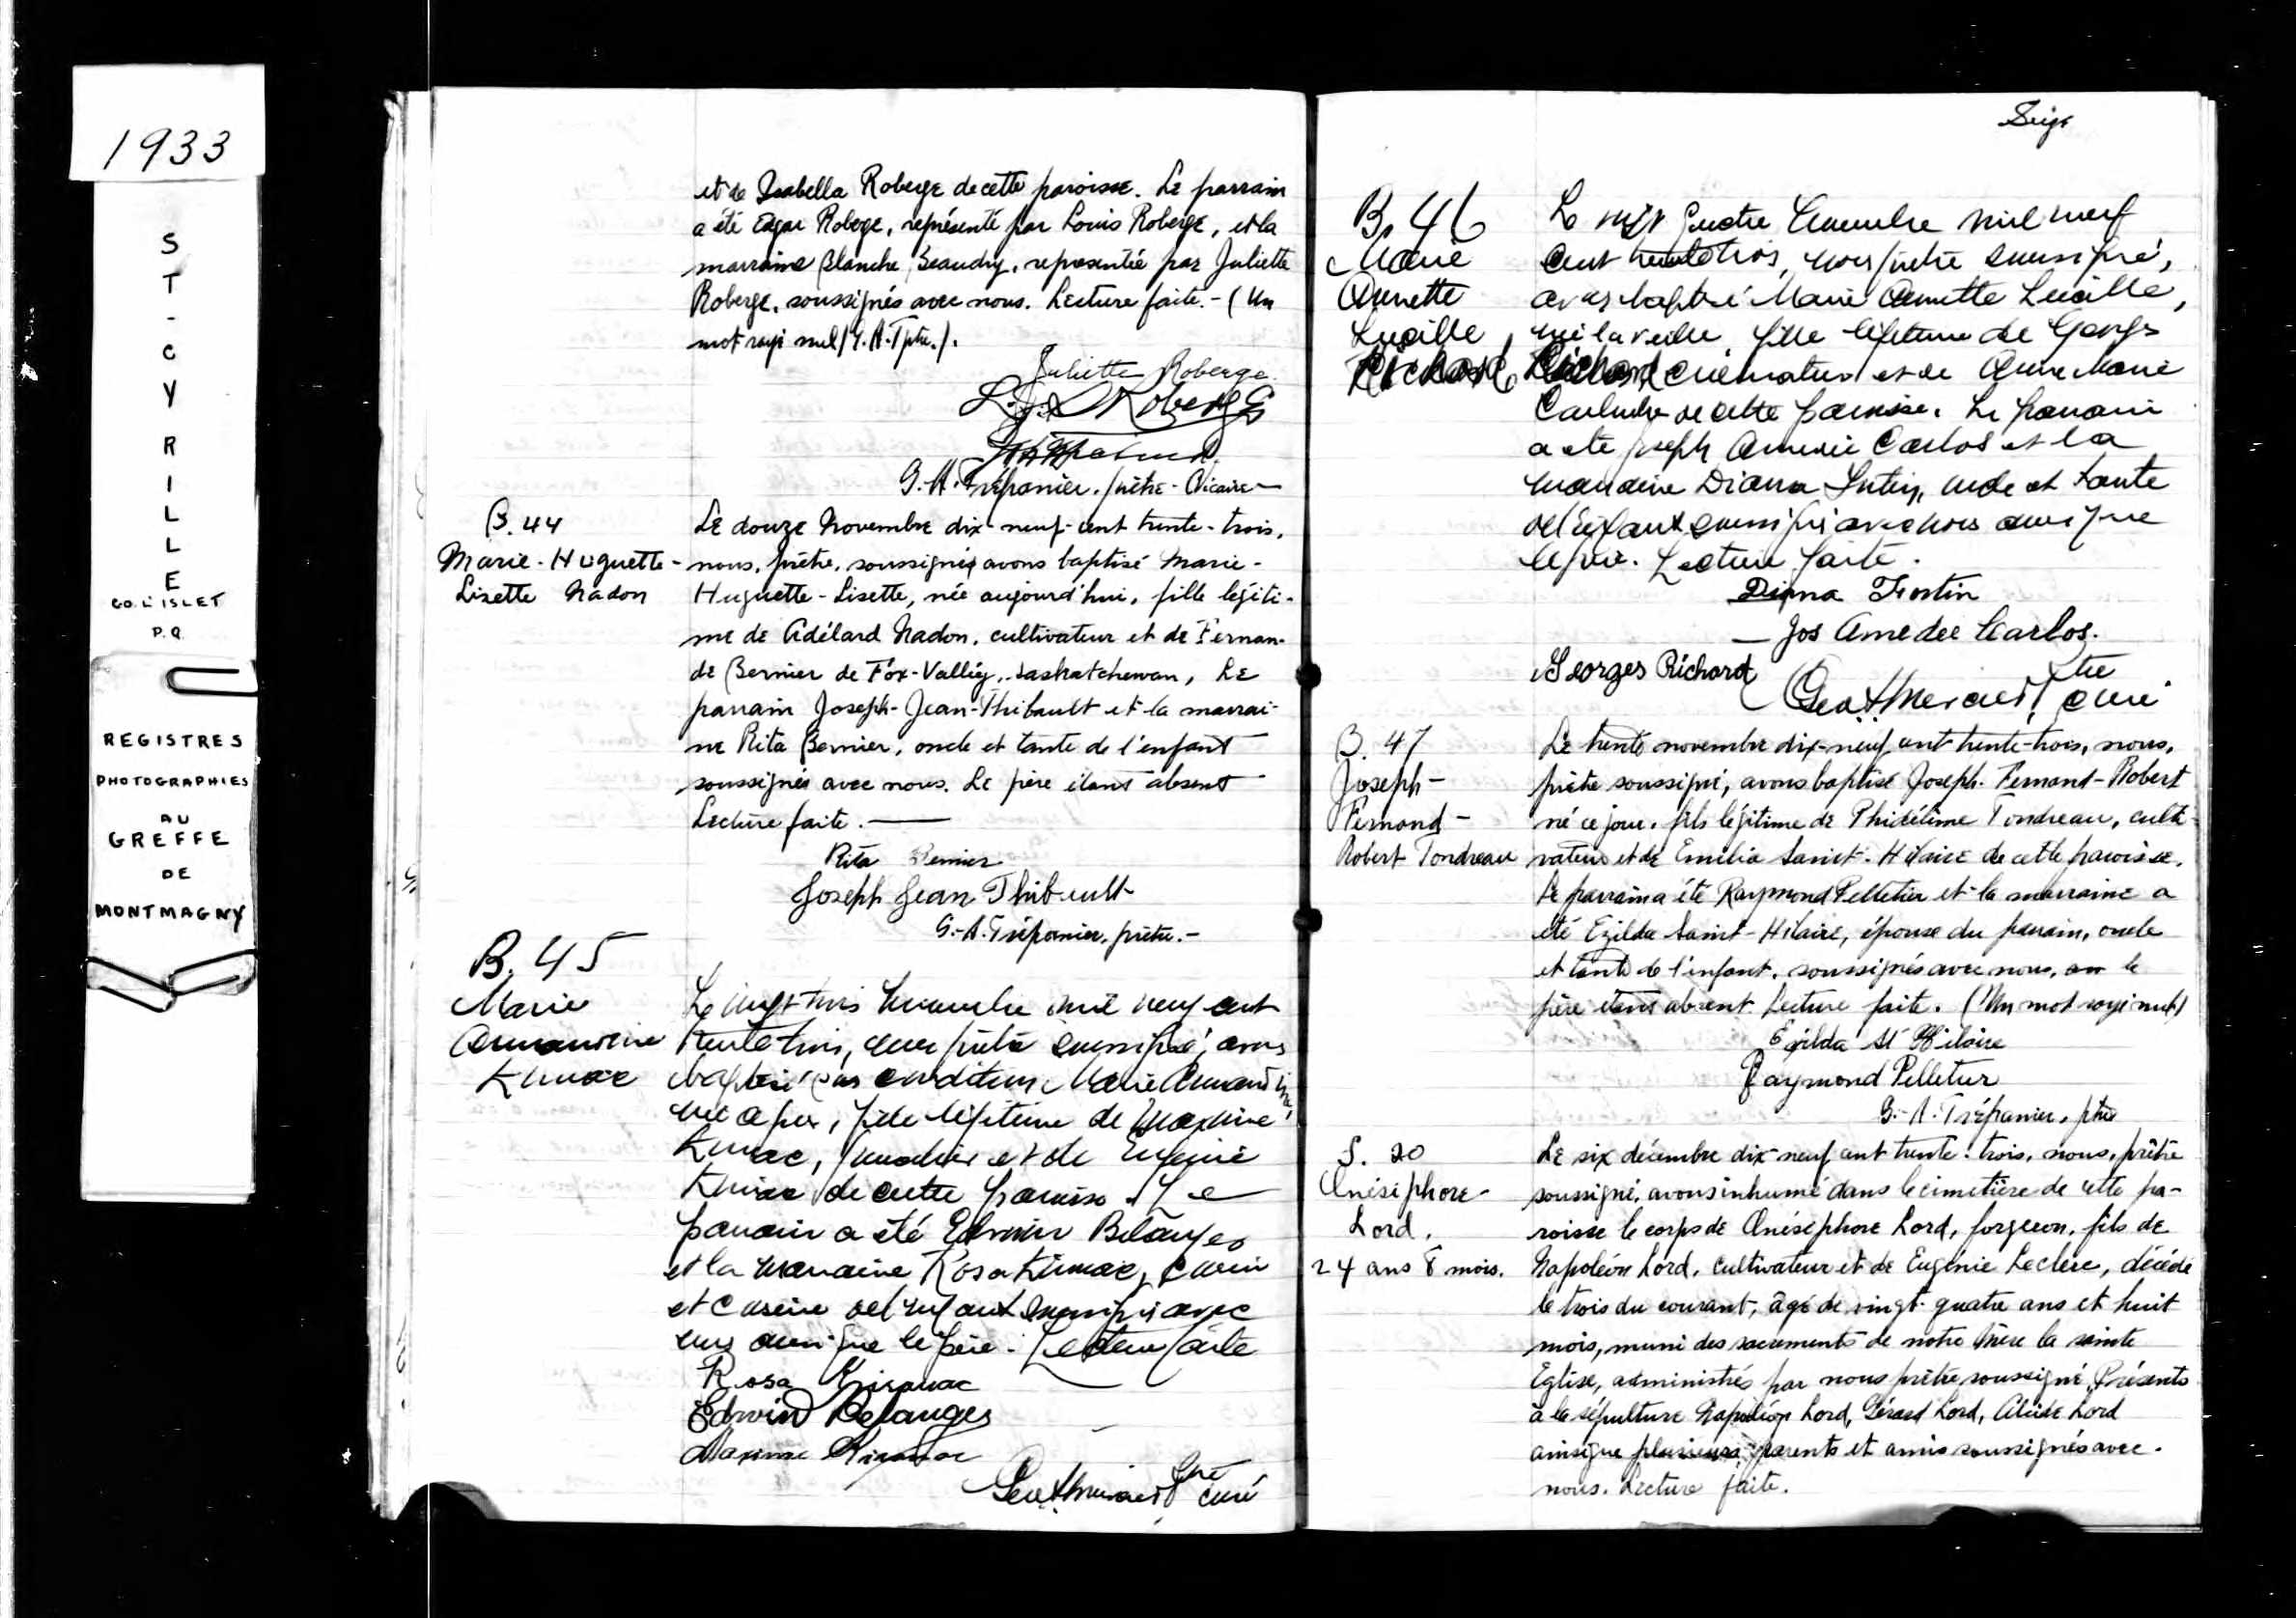 1933
ST-CYRILLE
CO. L'ISLET
P.Q.
REGISTRES
PHOTOGRAPHIES
AU
GREFFE
DE
MONTMAGNY
et de Isabella Roberge de cette paroisse. Le parrain
a été Edgar Roberge, représenté par Louis Roberge, et la
marraine Blanche Beaudry, représentée par Juliette
Roberge, soussignés avec nous. Lecture faite. - (Un
mot rayé nul) G.A.T. ptre.).
Juliette Roberge
Roberge
G.-A. Trépanier, prêtre-Vicaire
B. 44
Marie-Huguette-
Lisette Nadon
Le douze Novembre dix-neuf-cent trente-trois,
nous, prêtre, soussigné, avons baptisé Marie-
Huguette-Lisette, née aujourd'hui, fille légiti-
me de Adélard Nadon, cultivateur et de Fernan-
de Bernier de Fox-Valley, Saskatchewan, Le
parrain Joseph-Jean-Thibault et la marrai-
ne Rita Bernier, oncle et tante de l'enfant
soussignés avec nous. Le père étant absent
Lecture faite.
Rita Bernier
Joseph Jean Thibault
G.-A. Trépanier, prêtre.-
B. 45
Marie
Armandine
Kirouac
Le vingt trois Novembre mil neuf cent
trente trois, nous prêtre soussigné, avons
baptisé sous condition Marie Armandine,
née ce jour, fille légitime de Maxime
Kirouac, journalier et de Eugénie
Kirouac de cette paroisse. Le
parrain a été Edwin Bélanger
et la marraine Rosa Kirouac, cousin
et cousine de l'enfant soussignés avec
nous ainsi que le père. Lecture faite
Rosa Kirouac
Edwin Belanger
Maxime Kirouac
ptre
curé
Seize
B. 46
Marie
Annette
Lucille
Richard
Le vingt quatre Novembre mil neuf
cent trente trois, nous prêtre soussigné,
avons baptisé Marie Annette Lucille,
née la veille, fille légitime de Georges
Richard cultivateur et de Anne Marie
de cette paroisse. Le parrain
a été Joseph Amédée Carlos et la
marraine Diana Fortin, oncle et tante
de l'enfant soussignés avec nous ainsi que
le père. Lecture faite.
Diana Fortin
Jos Amedee Carlos.
Georges Richard
ptre
curé
B. 47
Joseph-
Fernand-
Robert Tondreau
Le trente novembre dix-neuf cent trente-trois, nous,
prêtre soussigné, avons baptisé Joseph-Fernand-Robert
né ce jour, fils légitime de Phidélime Tondreau, culti-
vateur et de Emilia Saint-Hilaire de cette paroisse.
Le parrain a été Raymond Pelletier et la marraine a
été Exilda Saint-Hilaire, épouse du parrain, oncle
et tante de l'enfant, soussignés avec nous, le
père étant absent Lecture faite. (Un mot rayé nul)
Exilda St Hilaire
Raymond Pelletier
G.-A. Trépanier, ptre
S. 20
Onésiphore-
Lord.
24 ans 8 mois.
Le six décembre dix-neuf cent trente-trois, nous, prêtre
soussigné, avons inhumé dans le cimetière de cette pa-
roisse le corps de Onésiphore Lord, forgeron, fils de
Napoléon Lord, cultivateur et de Eugénie Leclerc, décédé
le trois du courant, âgé de vingt-quatre ans et huit
mois, muni des sacrements de notre Mère la sainte
Eglise, administrés par nous prêtre soussigné. Présents
à la sépulture Napoléon Lord, Gérard Lord, Alcide Lord
ainsi que plusieurs parents et amis soussignés avec
nous. Lecture faite.